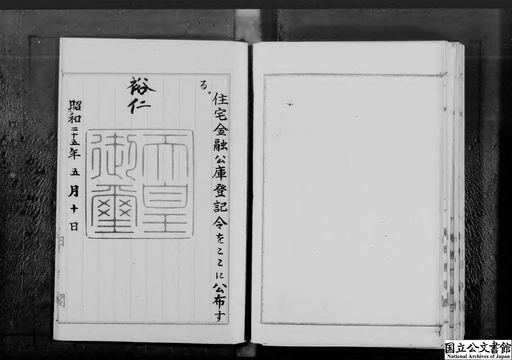 住宅金融公庫登記令をここに公布す
る。
裕仁
天皇
御璽
昭和二十五年五月十日
国立公文書館
National Archives of Japan